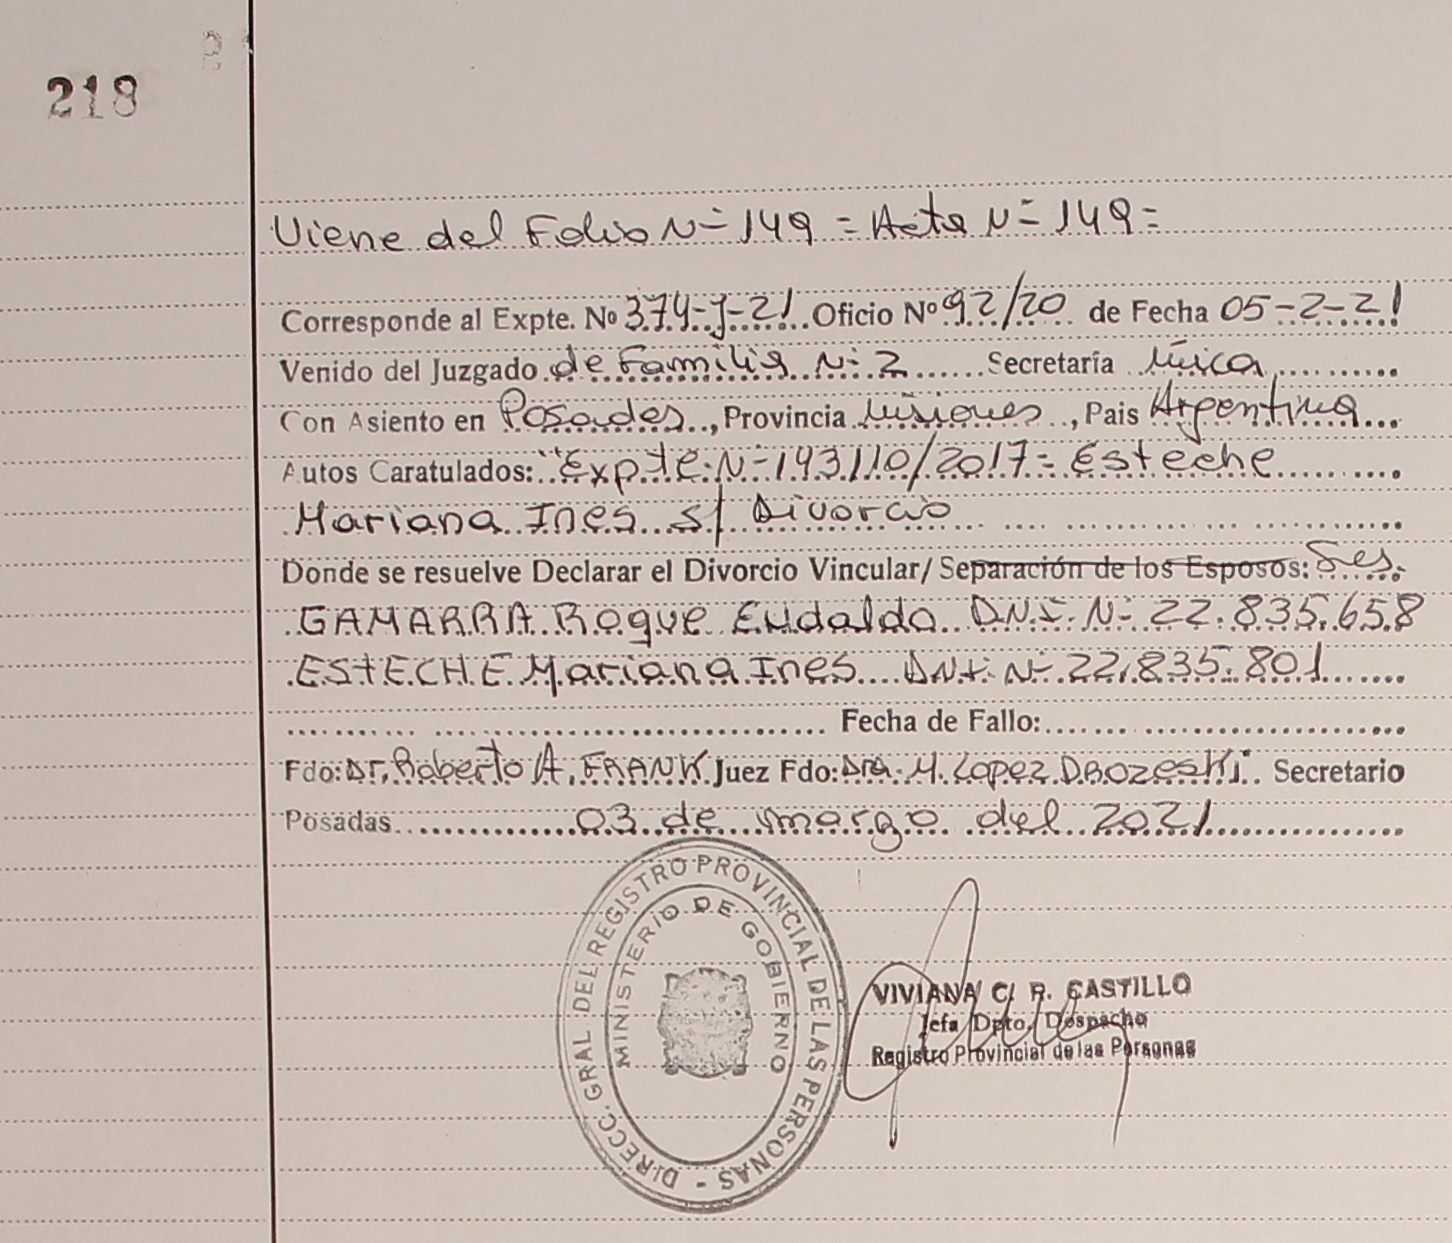 218
Viene del Folio Nº 149 = Acta Nº 149 =
Corresponde al Expte. Nº 374-J-21 Oficio Nº 92/20 de Fecha 05-2-21
Venido del Juzgado de Familia Nº 2 Secretaría Única
Con Asiento en Posadas, Provincia Misiones, Pais Argentina
Autos Caratulados: "Expte. Nº 143110/2017= Esteche
Mariana Ines s/ Divorcio
Donde se resuelve Declarar el Divorcio Vincular/ Separación de los Esposos: Sres.
GAMARRA Roque Eudaldo DNI. Nº 22.835.658
ESTECHE Mariana Ines DNI. Nº 22.835.801
Fecha de Fallo:
Fdo: Dr. Roberto A. FRANK Juez Fdo: Dra. M. Lopez DROZESKI. Secretario
Posadas 03 de marzo del 2021
DIRECC. GRAL. DEL REGISTRO PROVINCIAL DE LAS PERSONAS -
MINISTERIO DE GOBIERNO
VIVIANA C. R. CASTILLO
Jefa Dpto. Despacho
Registro Provincial de las Personas